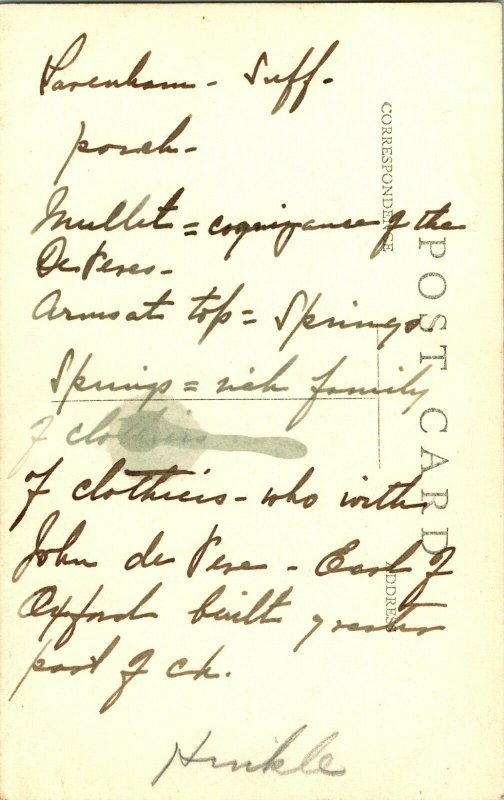 Lavenham - Suff-
porch-
Mullet = cognizance of the
De Veres-
Arms at top = Springs
Springs = rich family
of clothiers
of clothiers - who with
John de Vere - Earl of
Oxford built greater
part of ch.
Hinkle
POST CARD
CORRESPONDENCE
ADDRESS